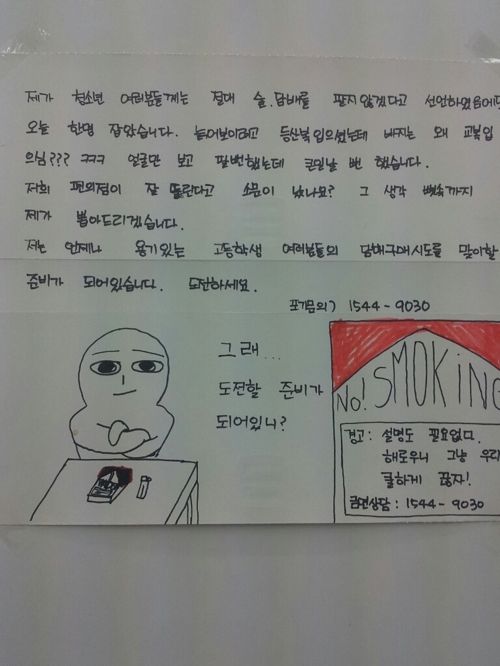 제가 청소년 여러분들게는 절대 술.담배를 팔지않겠다고 선언하였음에도
오늘 한명 잡았습니다. 늙어보이려고 등산복입으셨는데 바지는 왜 교복입
의심??? ㅋㅋㅋ 얼굴만 보고 팔뻔했는데 큰일날 뻔 했습니다.
저희 편의점이 잘 뚫린다고 소문이 났나요? 그 생각 뼛속까지
제가 뽑아드리겠습니다.
저는 언제나 용기있는 고등학생 여러분들의 담배구매시도를 맞이할
준비가 되어있습니다. 도전하세요.
포기문의) 1544-9030
그래...
도전할 준비가
되어있니?
No! SMOKING
경고: 설명도 필요없다.
해로우니 그냥 우리
쿨하게 끊자!
금연상담: 1544-9030